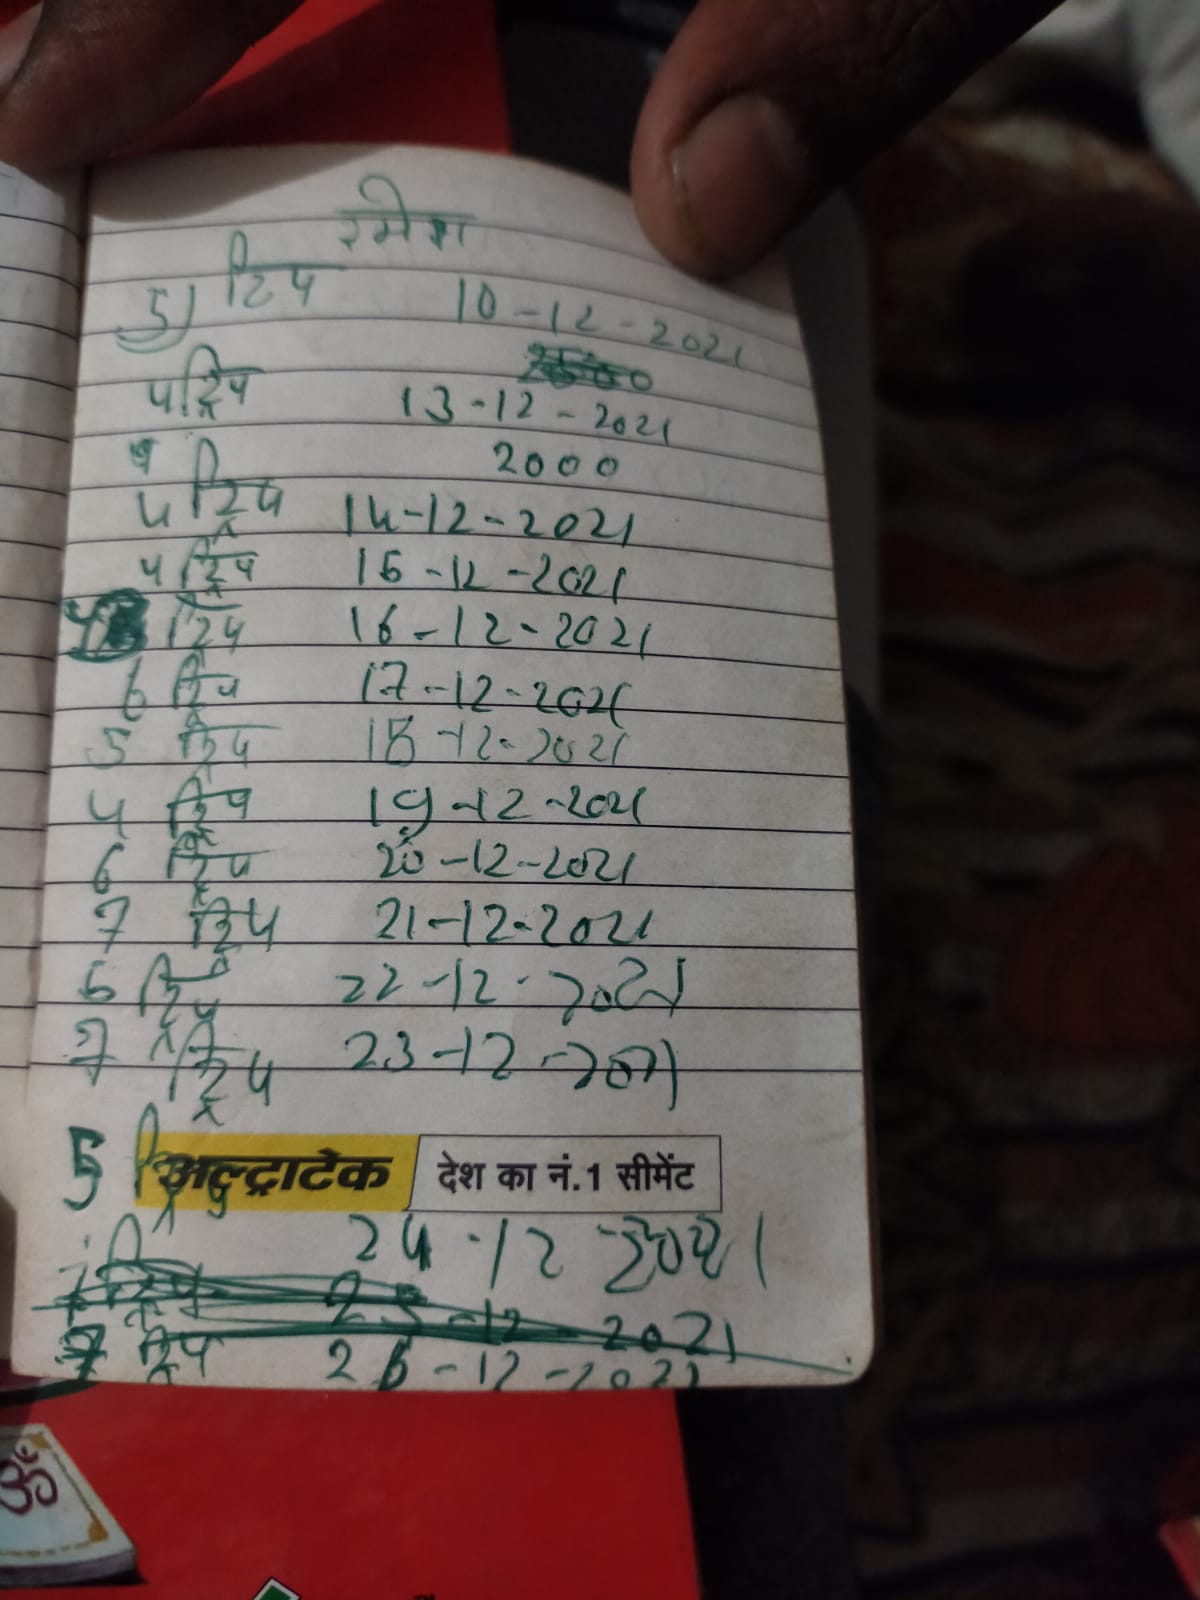 रमेश
5) ट्रिप 10-12-2021
4 ट्रिप 13-12-2021
2000
4 ट्रिप 14-12-2021
4 ट्रिप 15-12-2021
ट्रिप 16-12-2021
6 ट्रिप 17-12-2021
5 ट्रिप 18-12-2021
4 ट्रिप 19-12-2021
6 ट्रिप 20-12-2021
7 ट्रिप 21-12-2021
6 ट्रिप 22-12-2021
7 ट्रिप 23-12-2021
5 ट्रिप
अल्ट्राटेक देश का नं.1 सीमेंट
24-12 2021
7 ट्रिप 25-12-2021
7 ट्रिप 26-12-2021
ॐ